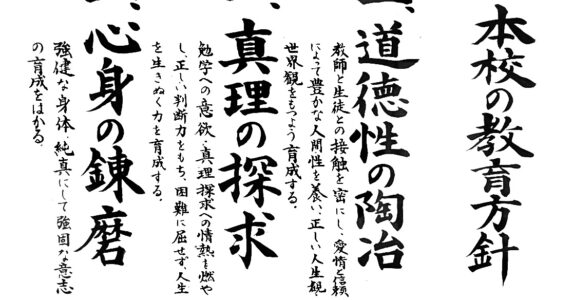 本校の教育方針
一、道徳性の陶冶
教師と生徒との接触を密にし、愛情と信頼
によって豊かな人間性を養い、正しい人生観、
世界観をもつよう育成する。
一、真理の探求
勉学への意欲、真理探求への情熱を燃や
し、正しい判断力をもち、困難に屈せず、人生
を生きぬく力を育成する。
一、心身の錬磨
強健な身体、純真にして強固な意志
の育成をはかる。